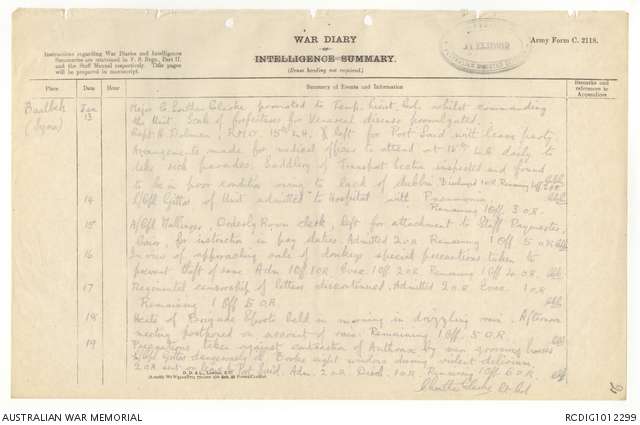 WAR DIARY
OF
INTELLIGENCE SUMMARY.
(Erase heading not required.)
Army Form C. 2118.
Instructions regarding War Diaries and Intelligence
Summaries are contained in F. S. Regs., Part II.
and the Staff Manual respectively. Title pages
will be prepared in manuscript.
Place
Date
Hour
Summary of Events and Information
Remarks and
references to
Appendices
Baalbek
(Syria)
Jan
13
Major C Leslie promoted to Temp. Lieut. Col. whilst commanding
the Unit. Scale of forfeitures for Venereal disease promulgated.
Capt. H. Dolman, R.M.O. 15th L.H. left for Port Said with leave party.
Arrangements made for medical officer to attend at 14th L.H. daily to
take sick parades. Saddlery of Transport Section inspected and found
to be in poor condition owing to lack of dubbin. Discharged 1 O.R. Remaining
14
L/Cpl Gittos of Unit admitted to Hospital with Pneumonia.
Remaining 1 Off. 3 O.R.
15
Orderly Room Clerk, left for attachment to Staff Paymaster,
Cairo, for instruction in pay duties. Admitted 2 O.R. Remaining 1 Off. 5 O.R.
16
In view of approaching sale of donkeys special precautions taken to
prevent theft of same. Adm. 1 Off. 1 O.R. Evac. 1 Off. 2 O.R. Remaining 1 Off. 4 O.R.
17
Regimental censorship of letters discontinued. Admitted 2 O.R. Evac. 1 O.R.
Remaining 1 Off. 5 O.R.
18
Heats of Brigade Sports held in morning in drizzling rain. Afternoon
meeting postponed on account of rain. Remaining 1 Off. 5 O.R.
19
Precautions taken against contraction of Anthrax by men grooming horses
L/Cpl Gittos dangerously ill. Broke eight windows during violent delirium
2 O.R. sent on leave to Port Said. Adm. 2 O.R. Disch. 1 O.R. Remaining 1 Off. 6 O.R.
Lt Col
D. D. & L., London, E.C.
AUSTRALIAN WAR MEMORIAL
RCDIG1012299